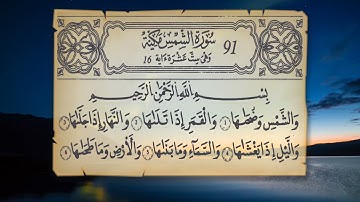 سُورَةُ الشَّمْسِ مَكِّيَّةٌ 91
وَهِيَ سِتَّ عَشْرَةَ ءَايَةً 16
بِسْمِ اللَّهِ الرَّحْمَٰنِ الرَّحِيمِ
وَالشَّمْسِ وَضُحَىٰهَا ① وَالْقَمَرِ إِذَا تَلَىٰهَا ② وَالنَّهَارِ إِذَا جَلَّىٰهَا ③
وَالَّيْلِ إِذَا يَغْشَىٰهَا ④ وَالسَّمَآءِ وَمَا بَنَىٰهَا ⑤ وَالْأَرْضِ وَمَا طَحَىٰهَا ⑥